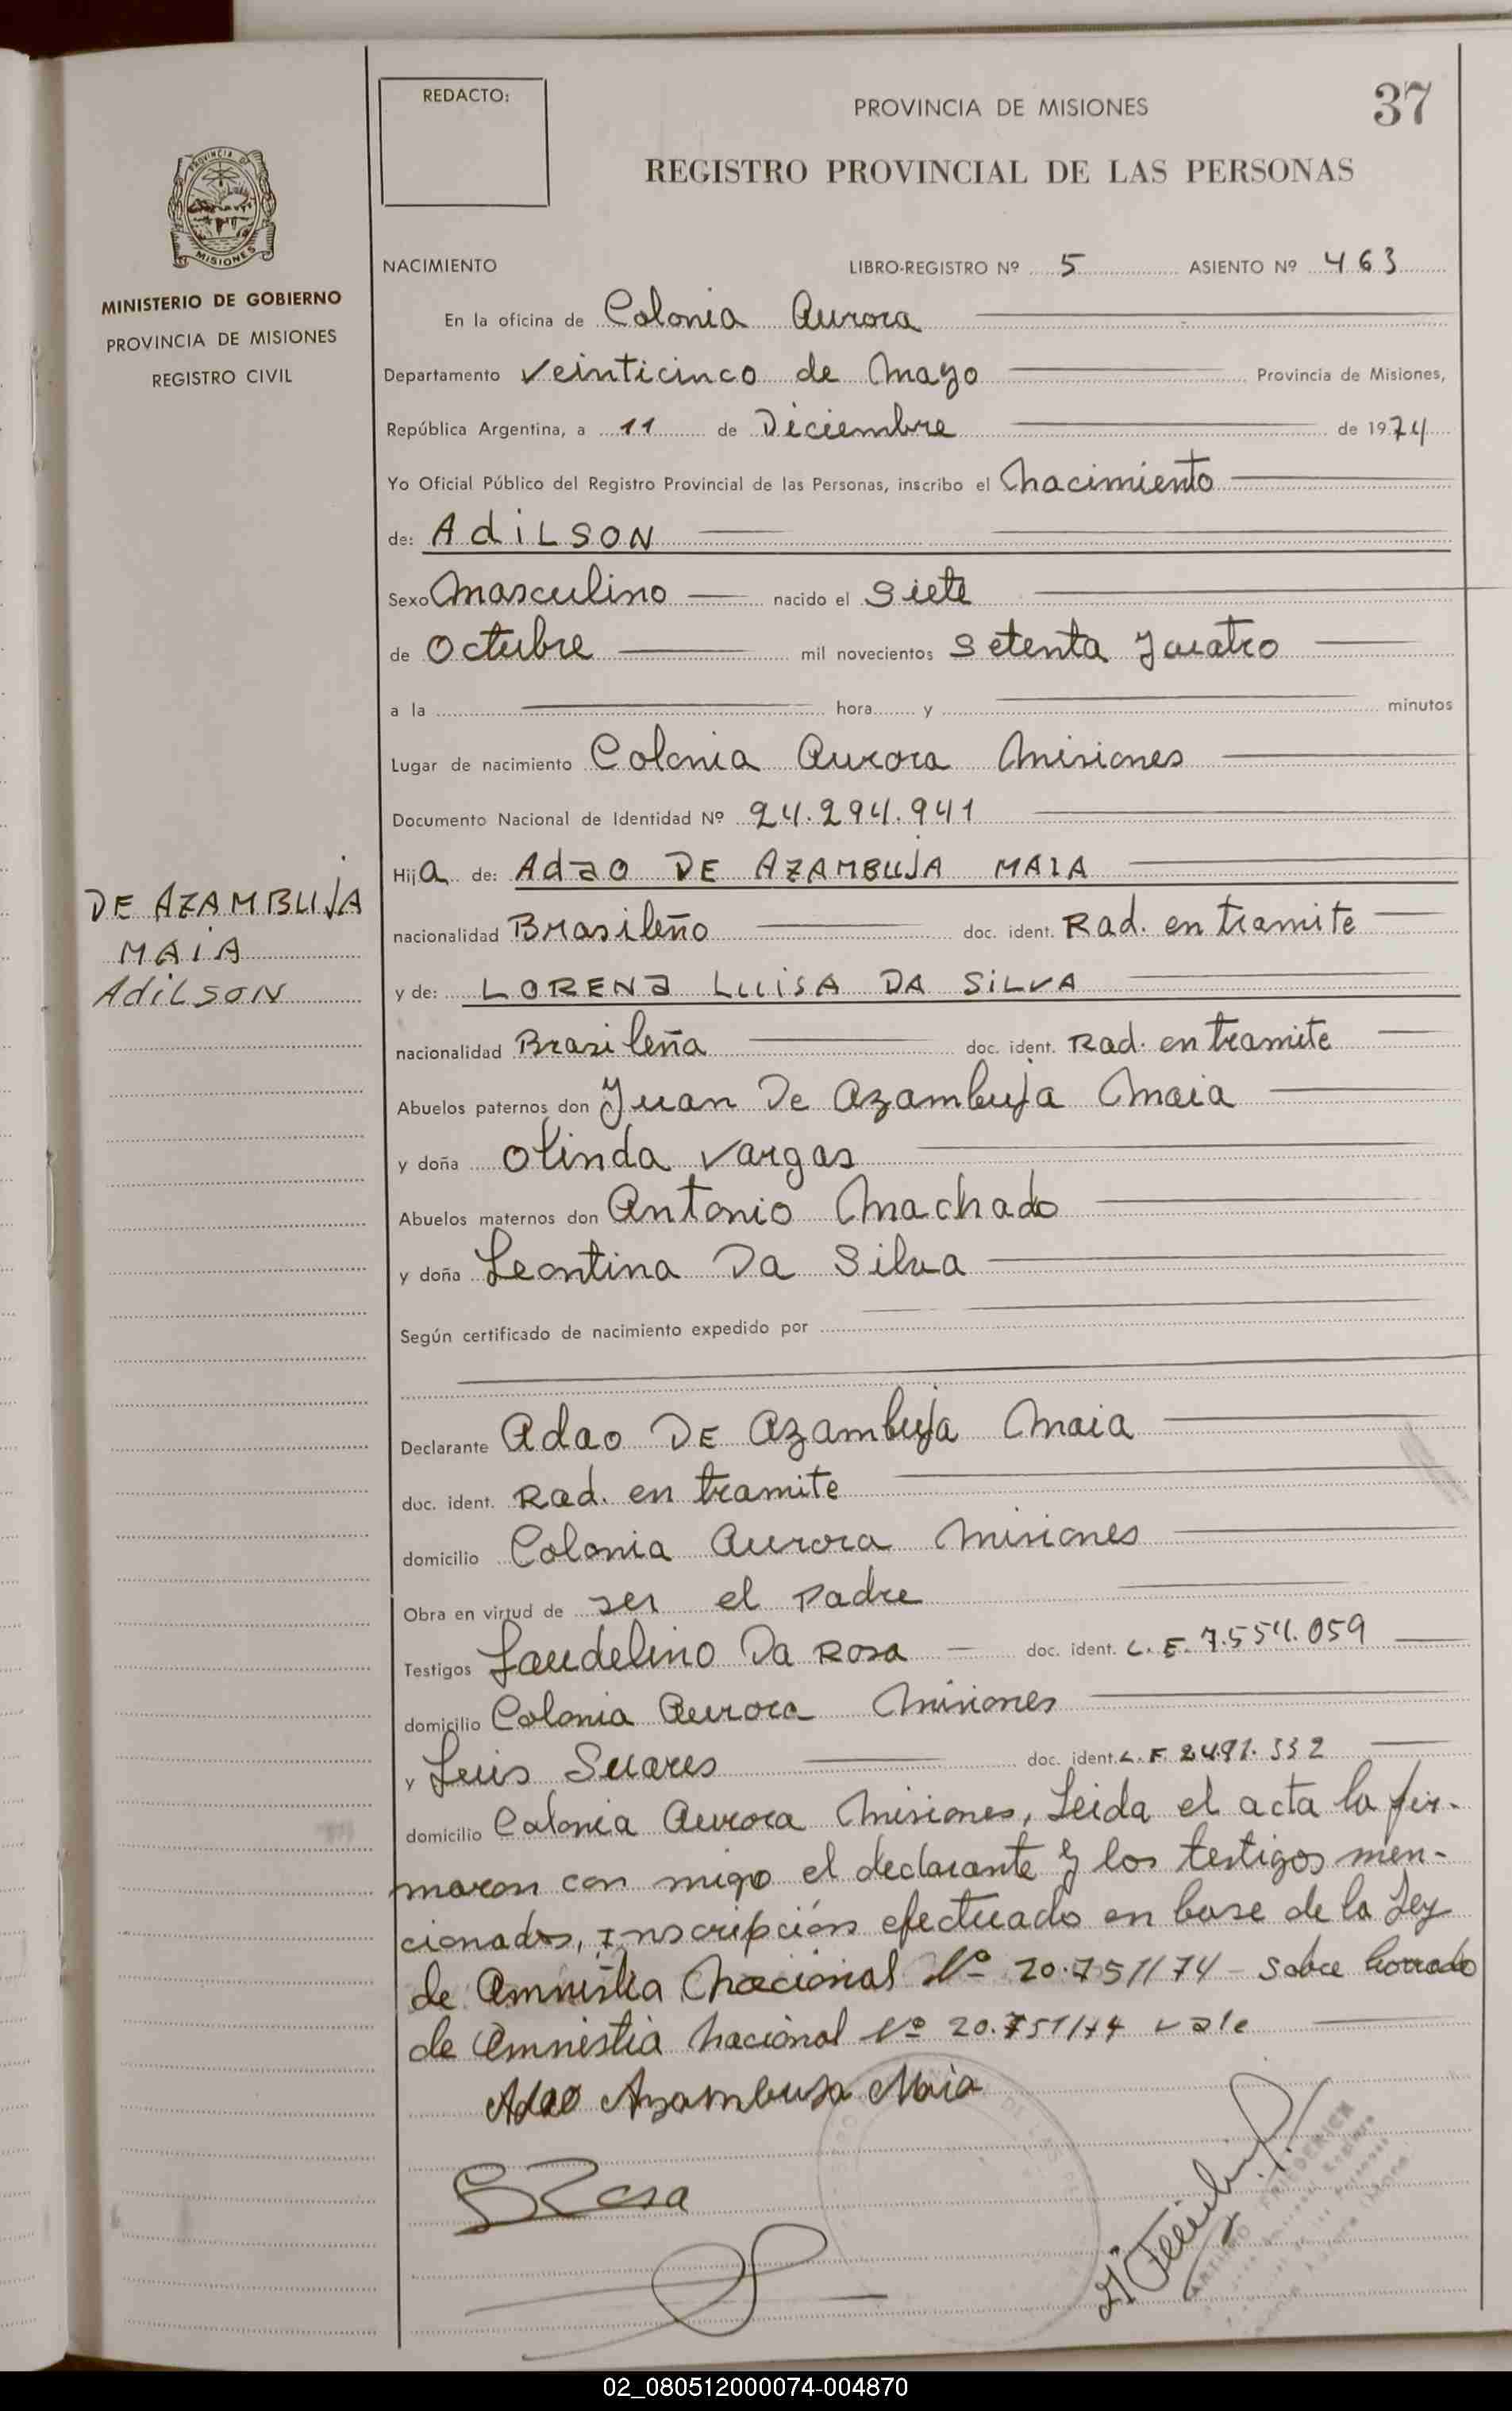 REDACTO:
PROVINCIA DE MISIONES
37
REGISTRO PROVINCIAL DE LAS PERSONAS
PROVINCIA DE
MISIONES
MINISTERIO DE GOBIERNO
PROVINCIA DE MISIONES
REGISTRO CIVIL
NACIMIENTO LIBRO-REGISTRO Nº 5 ASIENTO Nº 463
En la oficina de Colonia Aurora
Departamento Veinticinco de Mayo Provincia de Misiones,
República Argentina, a 11 de Diciembre de 1974
Yo Oficial Público del Registro Provincial de las Personas, inscribo el Nacimiento
de: AdiLSON
Sexo Masculino nacido el Siete
de Octubre mil novecientos Setenta y cuatro
a la hora y minutos
Lugar de nacimiento Colonia Aurora Misiones
Documento Nacional de Identidad Nº 24.294.941
Hija de: Adao DE AZAMBUJA MAIA
DE AZAMBUJA
MAiA
AdiLSON
nacionalidad Brasileño doc. ident. Rad. en tramite
y de: LORENa LUiSA DA SiLVA
nacionalidad Brasileña doc. ident. Rad. en tramite
Abuelos paternos don Juan De Azambuja Maia
y doña Olinda Vargas
Abuelos maternos don Antonio Machado
y doña Leontina Da Silva
Según certificado de nacimiento expedido por
Declarante Adao DE Azambuja Maia
doc. ident. Rad. en tramite
domicilio Colonia Aurora Misiones
Obra en virtud de ser el Padre
Testigos Laudelino Da Rosa doc. ident. L.E. 7.554.059
domicilio Colonia Aurora Misiones
y Luis Suares doc. ident. L.E. 2491.332
domicilio Colonia Aurora Misiones, Leida el acta la fir-
maron con migo el declarante y los testigos men-
cionados, Inscripción efectuado en base de la Ley
de Amnistia Nacional Nº 20.751/74 - Sobre borrado
de Amnistia Nacional Nº 20.751/74 vale
Adao Azambuja Maia
Rosa
FRIEDERICH
02_080512000074-004870